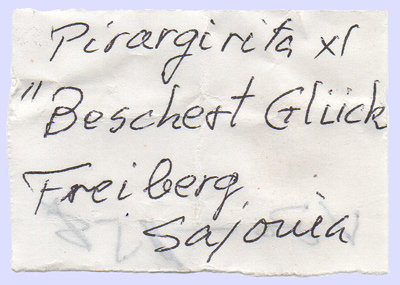 Pirargirita xl
"Beschert Glück
Freiberg
Sajonia